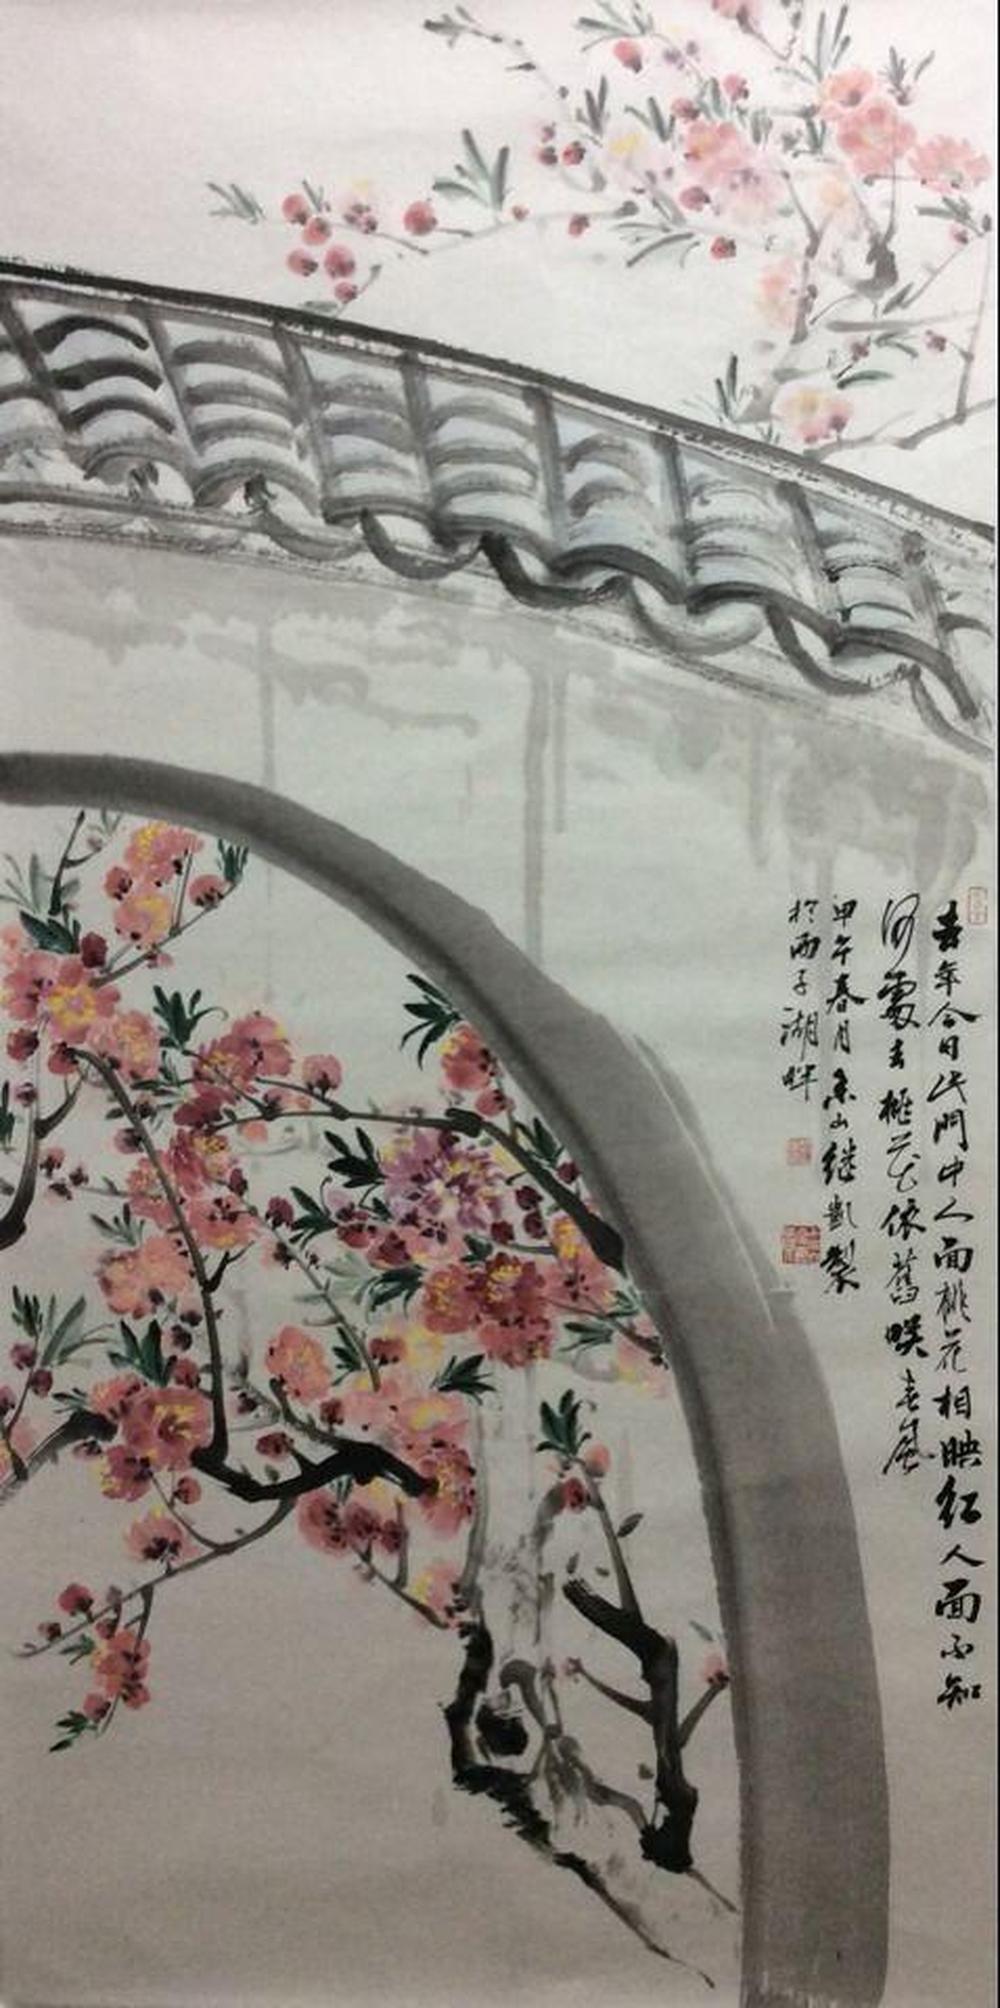 去年今日此門中人面桃花相映红人面不知
何處去桃花依舊咲春風
甲午春月山继凱製
於西子湖畔